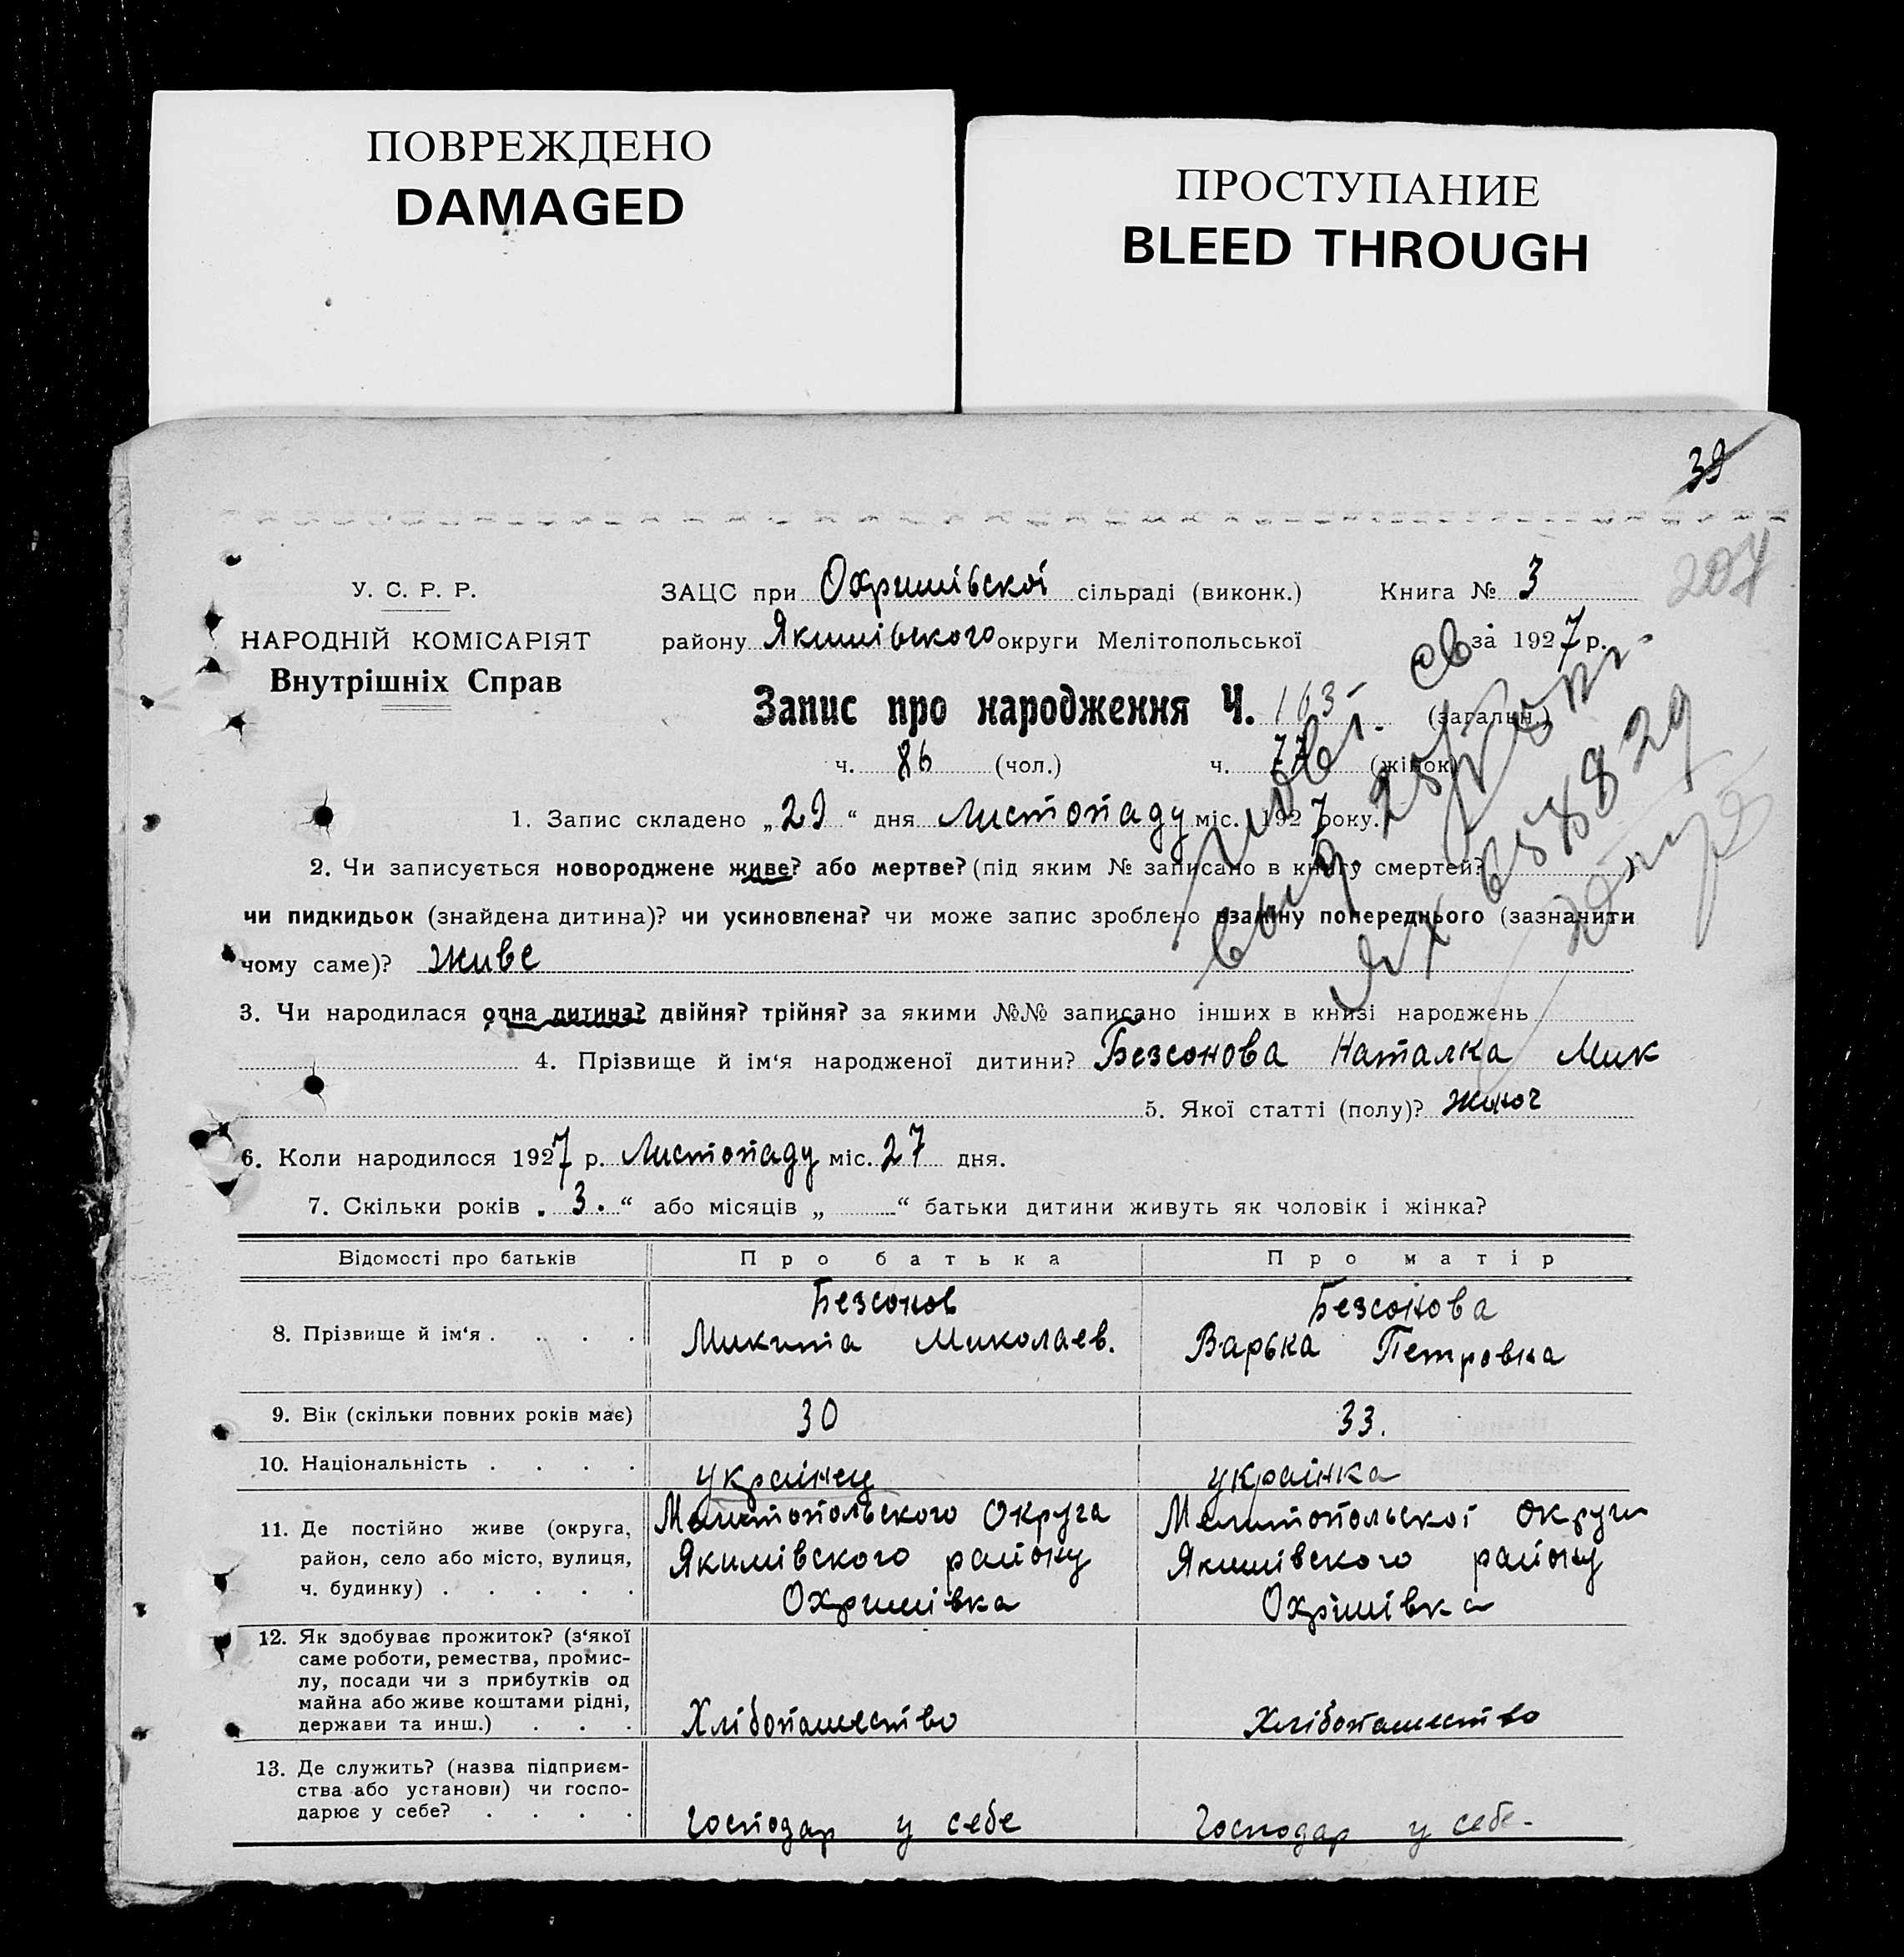 ПОВРЕЖДЕНО
DAMAGED
ПРОСТУПАНИЕ
BLEED THROUGH
39
207
У. С. Р. Р.
НАРОДНІЙ КОМІСАРІЯТ
Внутрішніх Справ
ЗАЦС при Охримівскої сільраді (виконк.) Книга № 3
району Якимівского округи Мелітопольської за 1927 р.
Запис про народження Ч. 163 (загальн.)
ч. 86 (чол.) ч. 77 (жінок)
1. Запис складено „29“ дня Листопаду міс. 1927 року.
2. Чи записується новороджене живе? або мертве? (під яким № записано в книгу смертей?
чи пидкидьок (знайдена дитина)? чи усиновлена? чи може запис зроблено взаміну попереднього (зазначити
чому саме)? живе
3. Чи народилася одна дитина? двійня? трійня? за якими №№ записано інших в книзі народжень
4. Прізвище й ім‘я народженої дитини? Безсонова Наталка Мик
5. Якої статті (полу)? жіноч
6. Коли народилося 1927 р. Листопаду міс. 27 дня.
7. Скільки років „3.“ або місяців „ “ батьки дитини живуть як чоловік і жінка?
Відомості про батьків Про батька Про матір
8. Прізвище й ім‘я . . . . Безсонов Микита Миколаев. Безсонова Варька Петровна
9. Вік (скільки повних років має) 30 33.
10. Національність . . . . українец українка
11. Де постійно живе (округа, Мелитопольского Округа Мелитопольскої округи
район, село або місто, вулиця, Якимівского району Якимівского району
ч. будинку) . . . . . Охримівка Охрімівка
12. Як здобуває прожиток? (з‘якої
саме роботи, ремества, промис-
лу, посади чи з прибутків од
майна або живе коштами рідні,
держави та инш.) . . . Хлібопашество Хлібопашество
13. Де служить? (назва підприєм-
ства або установи) чи госпо-
дарює у себе? . . . . Господар у себе Господар у себе-